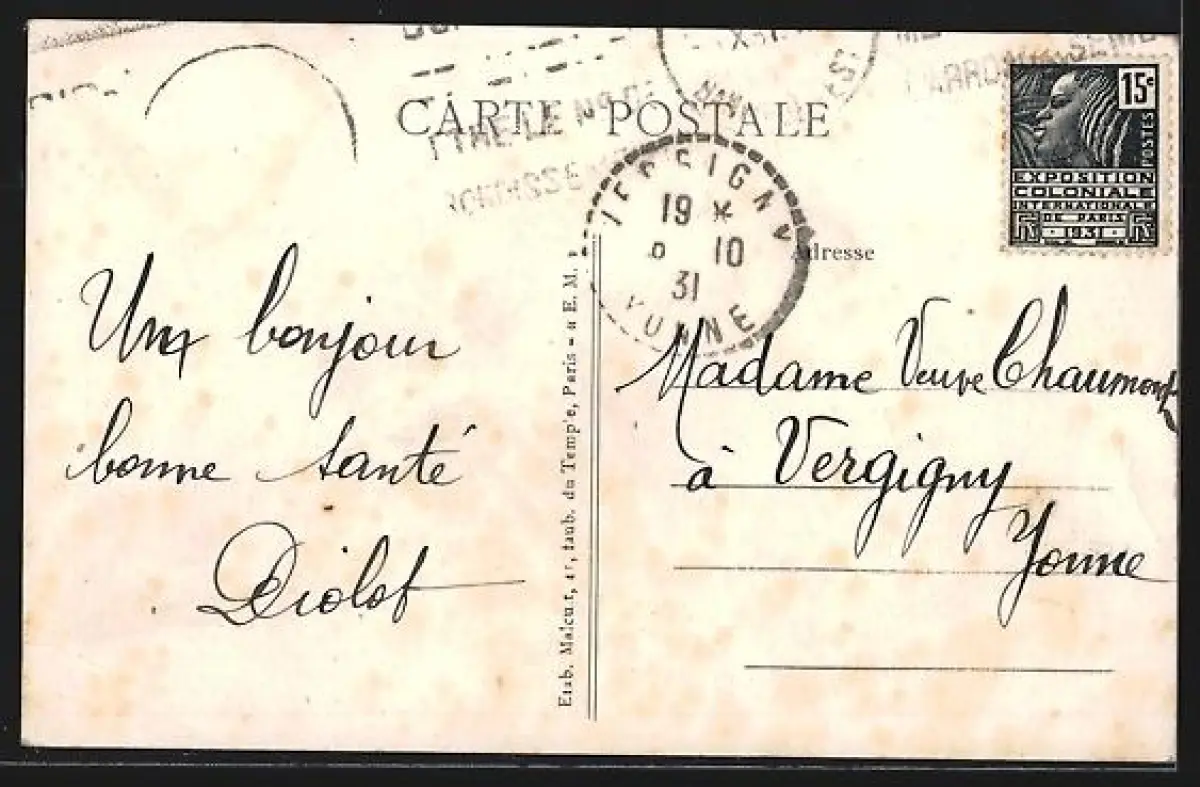 CARTE POSTALE
19 *
10
31
YONNE
15c
POSTES
EXPOSITION
COLONIALE
INTERNATIONALE
DE PARIS
1931
Adresse
Un bonjour
bonne santé
Diolot
Etab. Malcuit, 41, faub. du Temple, Paris
E. M.
Madame Veuve Chaumont
à Vergigny
Yonne